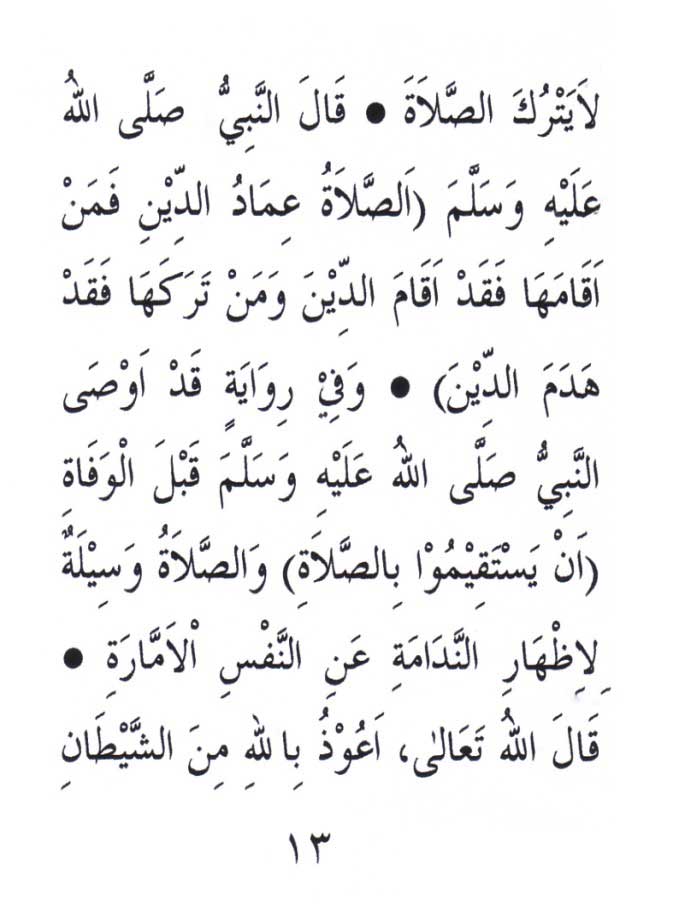 لاَيَتْرُكَ الصَّلاَةَ ● قَالَ النَّبِيُّ صَلَّى اللهُ
عَلَيْهِ وَسَلَّمَ (اَلصَّلاَةُ عِمَادُ الدِّيْنِ فَمَنْ
اَقَامَهَا فَقَدْ اَقَامَ الدِّيْنَ وَمَنْ تَرَكَهَا فَقَدْ
هَدَمَ الدِّيْنَ) ● وَفِيْ رِوَايَةٍ قَدْ اَوْصَى
النَّبِيُّ صَلَّى اللهُ عَلَيْهِ وَسَلَّمَ قَبْلَ الْوَفَاةِ
(اَنْ يَسْتَقِيْمُوْا بِالصَّلاَةِ) وَالصَّلاَةُ وَسِيْلَةٌ
لِاِظْهَارِ النَّدَامَةِ عَنِ النَّفْسِ اْلاَمَّارَةِ ●
قَالَ اللهُ تَعَالٰى، اَعُوْذُ بِاللهِ مِنَ الشَّيْطَانِ
١٣